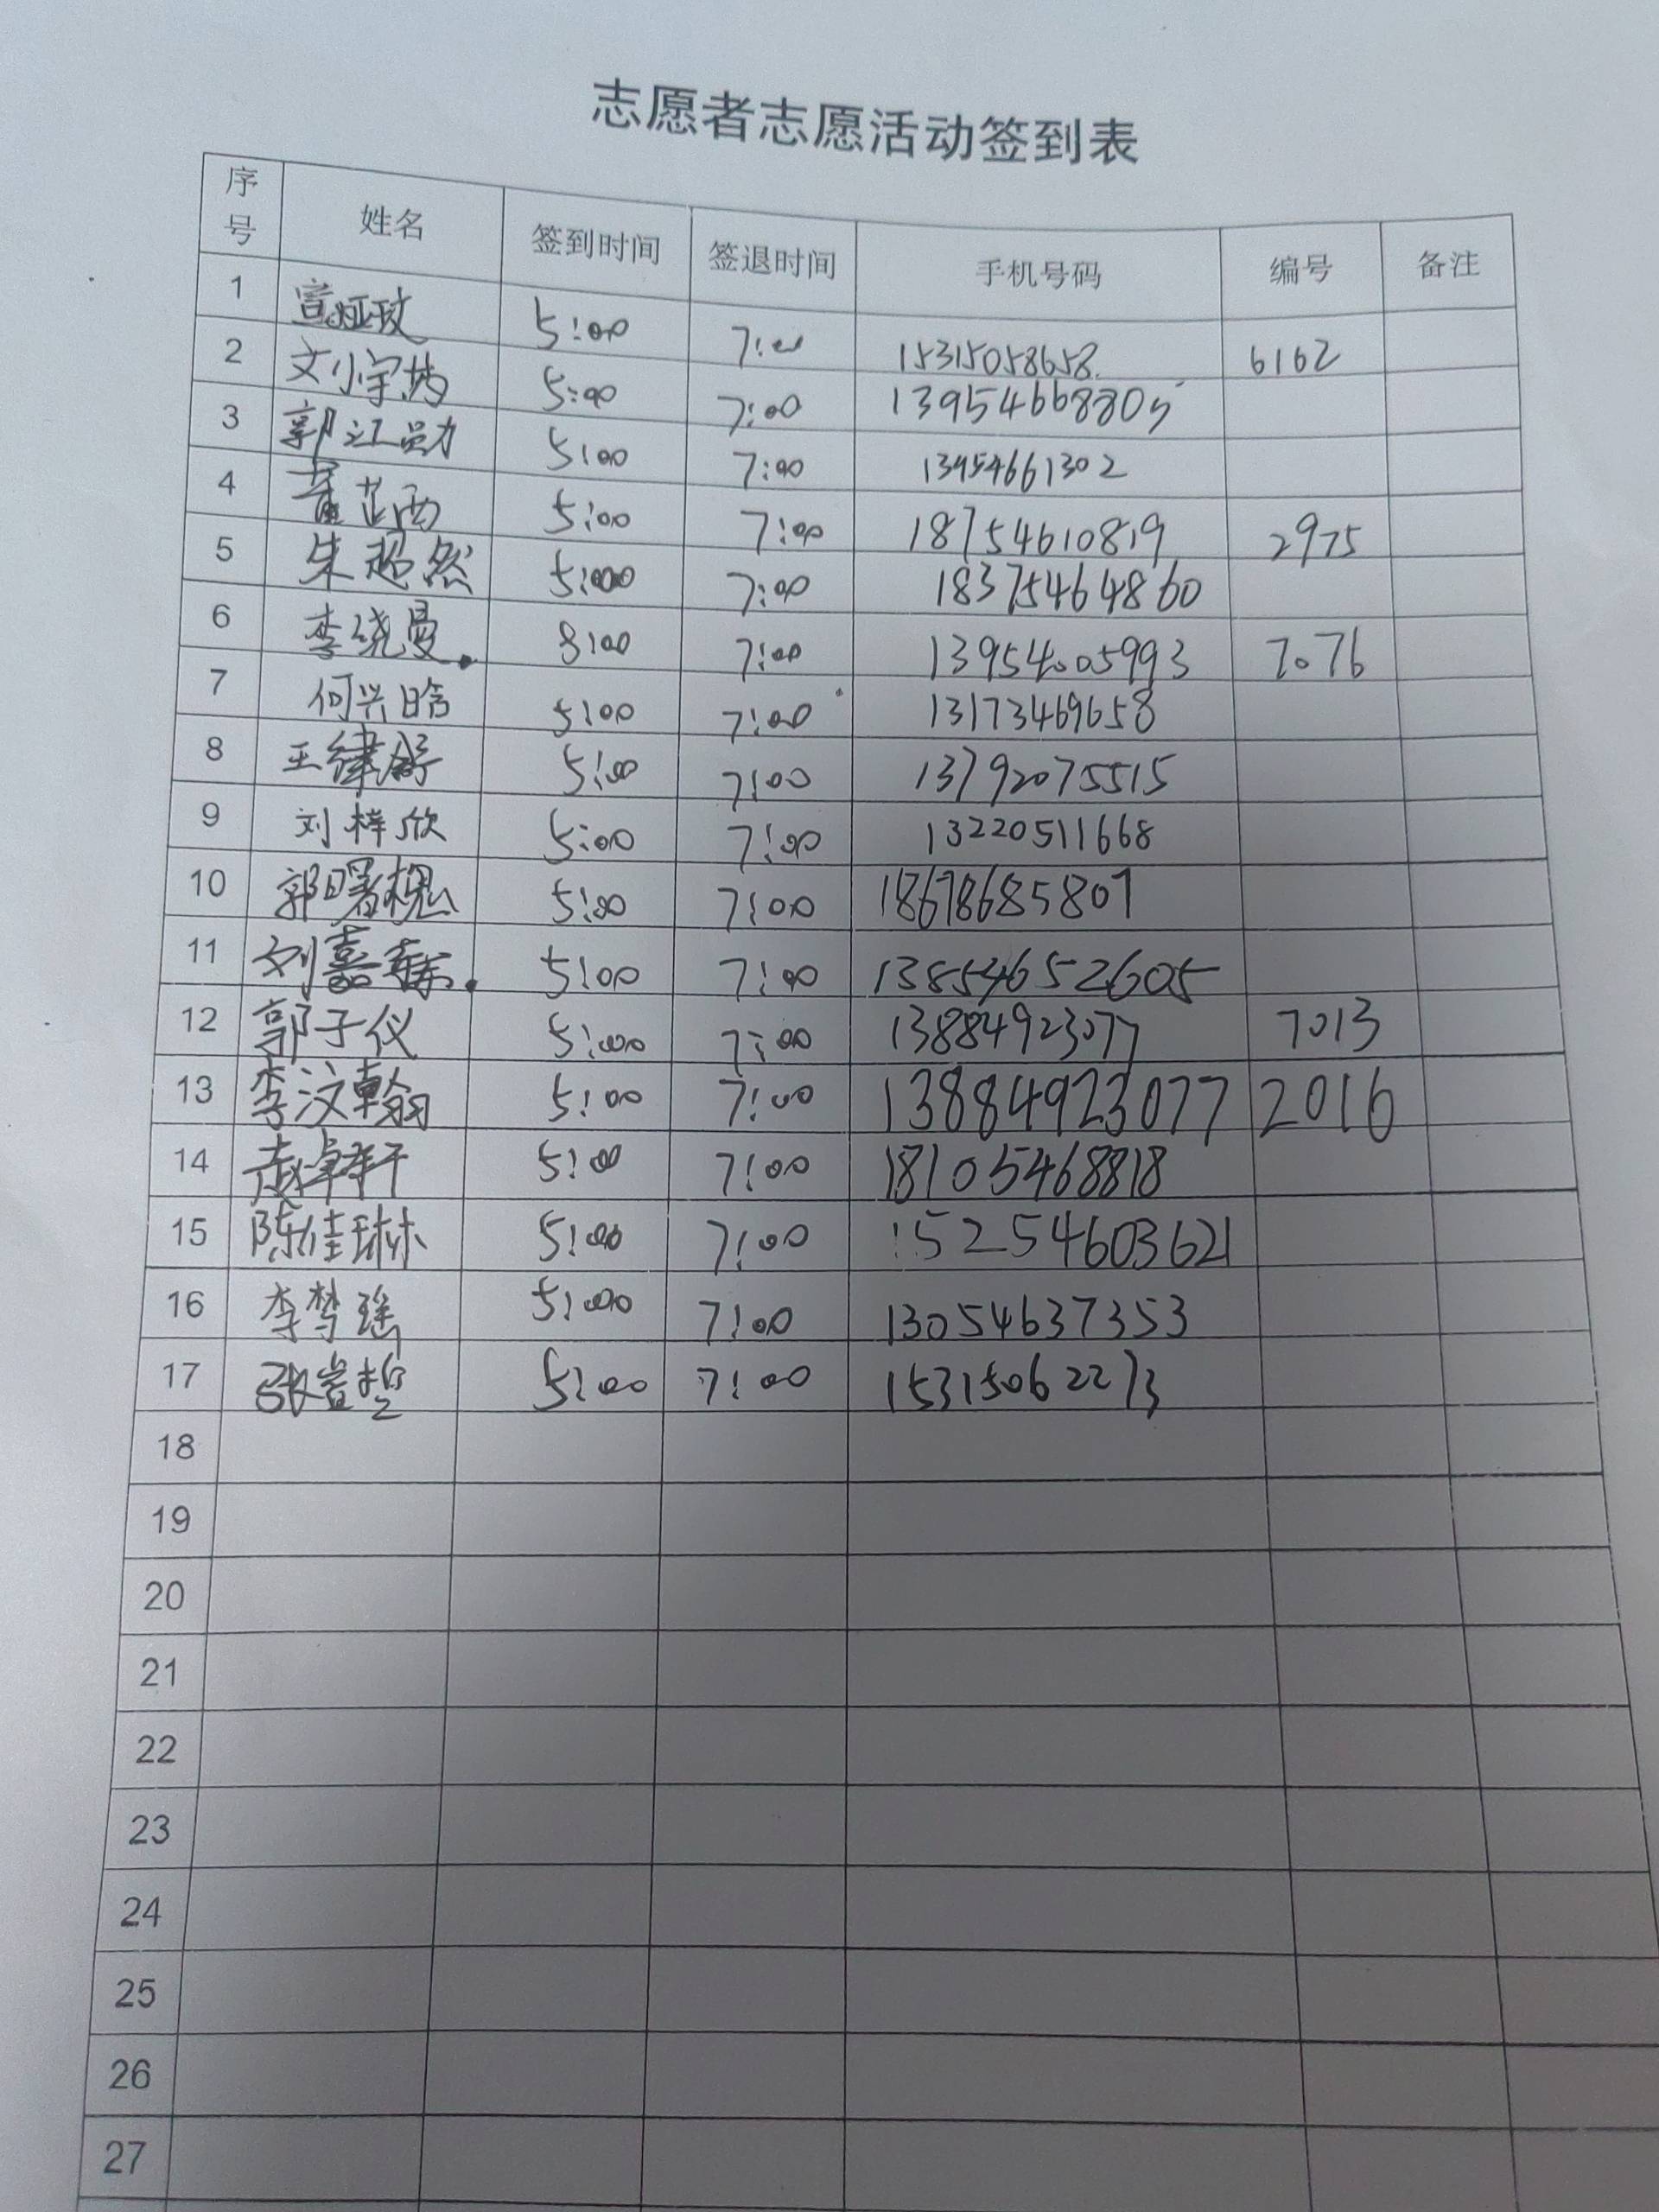 志愿者志愿活动签到表
序号 姓名 签到时间 签退时间 手机号码 编号 备注
1 宣娅玟 5:00 7:00 15315058658 6162
2 文小宇 5:00 7:00 13954668805
3 郭江勋 5:00 7:00 13954661302
4 芷西 5:00 7:00 18754610819 2975
5 朱超然 5:000 7:00 18375464860
6 李晓曼 8:00 7:00 13954005993 7076
7 何兴晗 5:00 7:00 13173469658
8 王 舒 5:00 7:00 13792075515
9 刘梓欣 5:00 7:00 13220511668
10 郭曙槐 5:00 7:00 18678685807
11 刘嘉 5:00 7:00 13854652605
12 郭子仪 5:000 7:00 13884923077 7013
13 李汶翰 5:00 7:00 13884923077 2016
14 5:00 7:00 18105468818
15 陈佳琳 5:00 7:00 15254603621
16 李梦瑶 5:000 7:00 13054637353
17 张 哲 5:00 7:00 15315062273
18
19
20
21
22
23
24
25
26
27